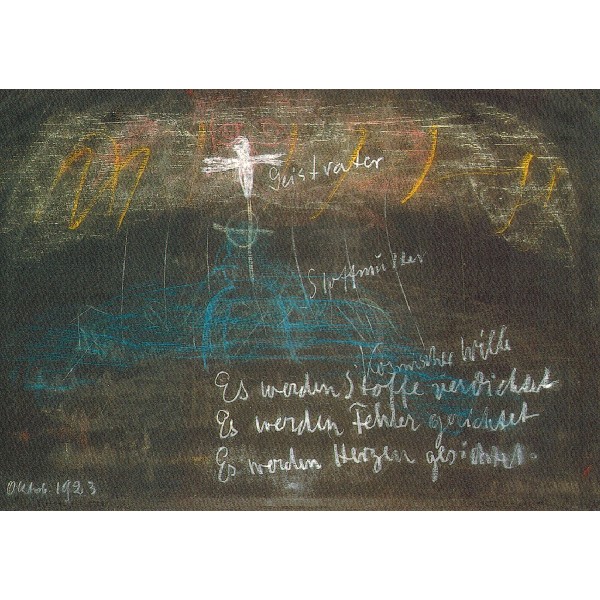 Geistvater
Stoffmutter
Kosmischer Wille
Es werden Stoffe verdichtet
Es werden Fehler gerichtet
Es werden Herzen gesichtet.
Oktob. 1923